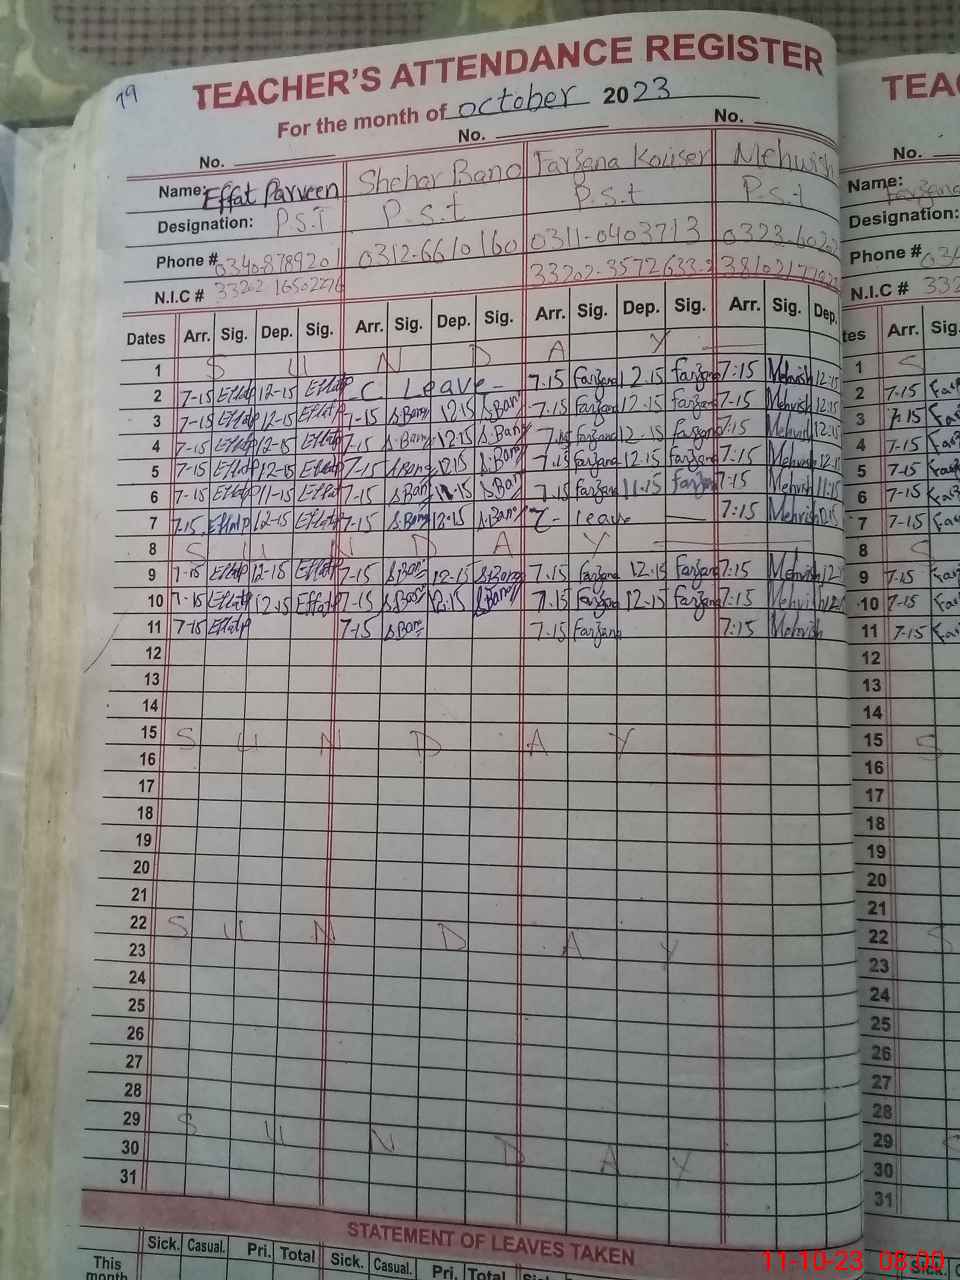 79
TEACHER'S ATTENDANCE REGISTER
For the month of october 2023
No. No. No.
Name: Effat Parveen Shehar Bano Farzana Kouser Mehwish
Designation: P.S.T P.s.t P.s.t P.s.t
Phone # 03408789201 0312-6610160 0311-0403713
N.I.C #
Dates Arr. Sig. Dep. Sig. Arr. Sig. Dep. Sig. Arr. Sig. Dep. Sig. Arr. Sig. Dep.
1 S U N D A Y
2 7-15 Effatp 12-15 Effatp C Leave - 7.15 Farzana 12.15 Farzana 7:15 Mehwish 12:15
3 7-15 Effatp 12-15 Effatp 7-15 S.Bano 12.15 S.Bano 7.15 Farzana 12.15 Farzana 7.15 Mehwish 12:15
4 7-15 Effatp 12-15 Effatp 7.15 S.Bano 12.15 S.Bano 7.15 Farzana 12.15 Farzana 7:15 Mehwish 12:15
5 7-15 Effatp 12-15 Effatp 7-15 S.Bano 12.15 S.Bano 7.15 Farzana 12.15 Farzana 7:15 Mehwish 12:15
6 7-15 Effatp 11-15 Effat 7-15 S.Bano 11.15 S.Bano 7.15 Farzana 11.15 Farzana 7:15 Mehwish 11:15
7 7.15 Effatp 12-15 Effatp 7-15 S.Bano 12.15 S.Bano C- leave 7:15 Mehwish 12:15
8 S U N D A Y
9 7-15 Effatp 12-15 Effatp 7-15 S.Bano 12-15 S.Bano 7.15 Farzana 12.15 Farzana 7:15 Mehwish
10 7-15 Effatp 12.15 Effatp 7-15 S.Bano 12.15 S.Bano 7.15 Farzana 12.15 Farzana 7:15 Mehwish
11 7-15 Effatp 7-15 S.Bano 7.15 Farzana 7:15 Mehwish
12
13
14
15 S U N D A Y
16
17
18
19
20
21
22 S U N D A Y
23
24
25
26
27
28
29 S U N D A Y
30
31
STATEMENT OF LEAVES TAKEN
Sick. Casual. Pri. Total Sick. Casual. Pri. Total
This month
TEA
No.
Name: Farzana
Designation:
Phone #
N.I.C # 332
tes Arr. Sig.
1 S
2 7-15
3 7.15
4 7-15
5 7-15
6 7-15
7 7-15
8 S
9 7-15
10 7-15
11 7-15
12
13
14
15 S
16
17
18
19
20
21
22 S
23
24
25
26
27
28
29 S
30
31
Sick.
11-10-23 08:00